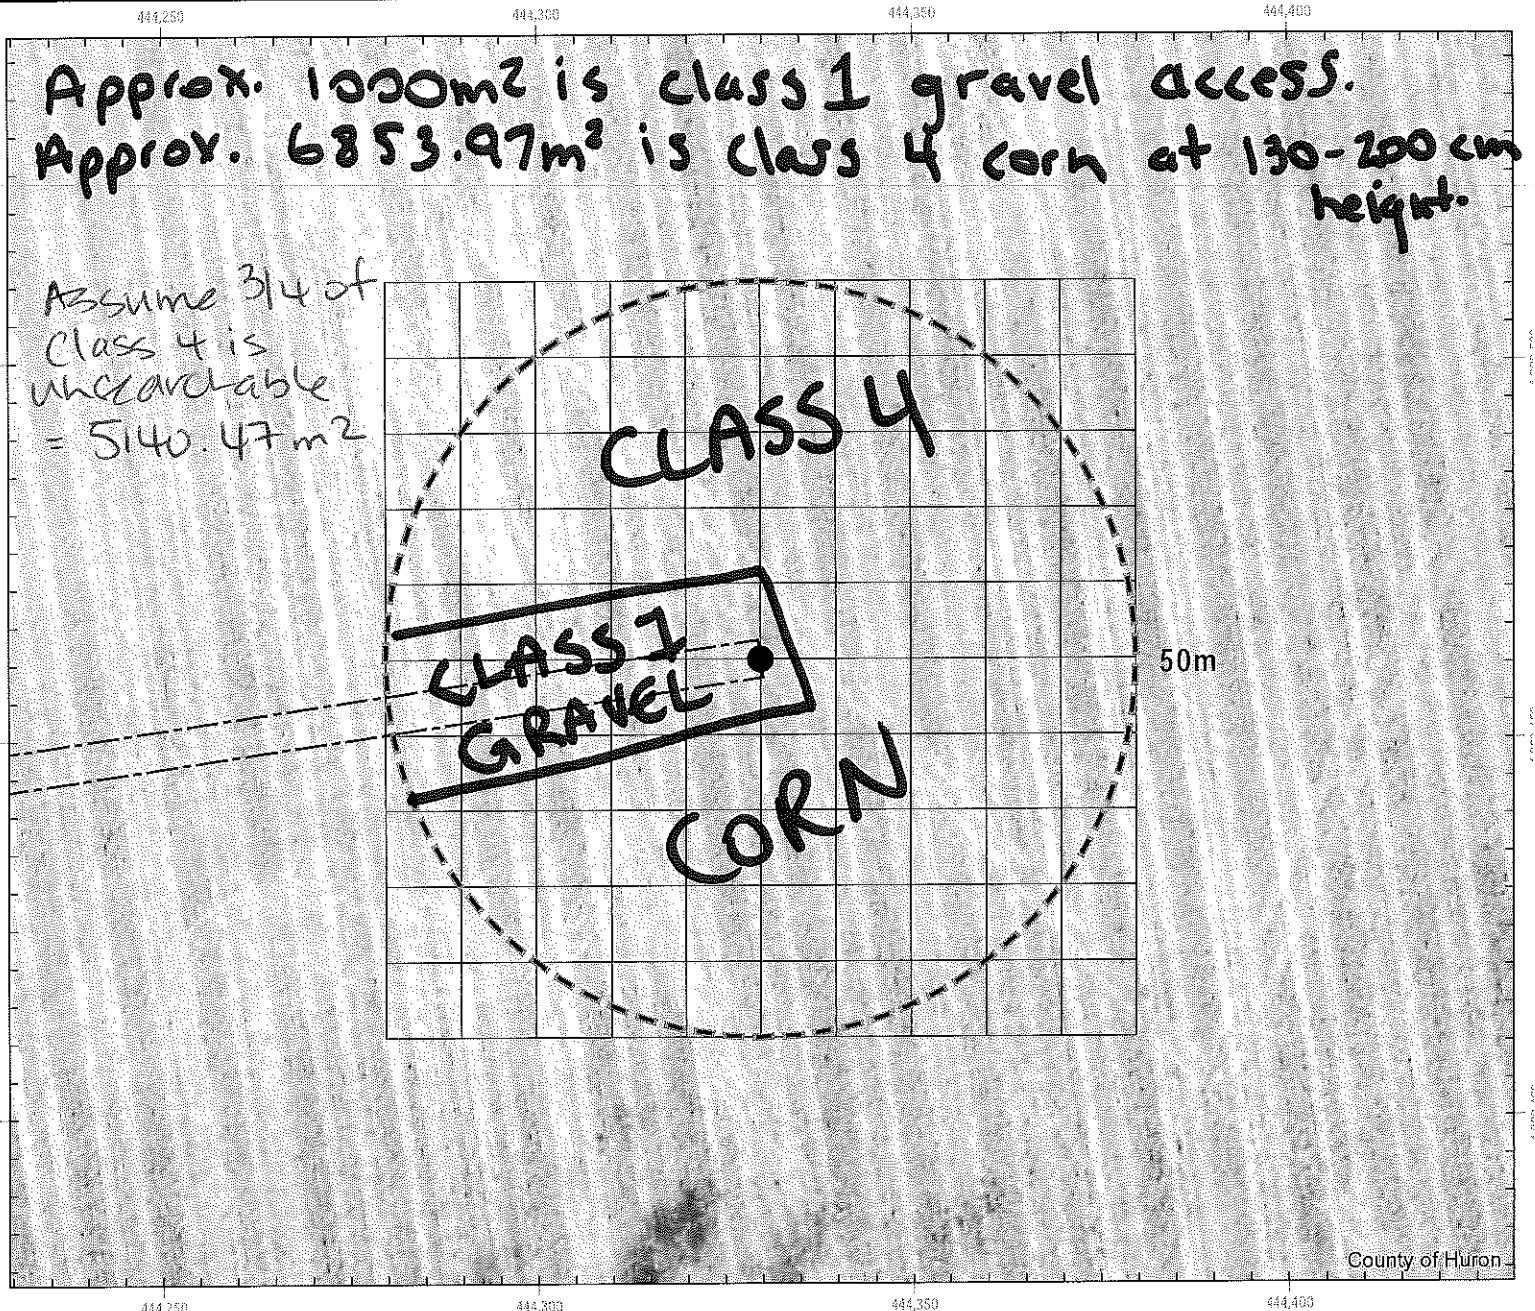 444,250 444,300 444,350 444,400
Approx. 1000m² is class 1 gravel access.
Approx. 6853.97m² is class 4 corn at 130-200cm
height.
Assume 3/4 of
Class 4 is
unsearchable
= 5140.47m²
CLASS 4
CLASS 1
GRAVEL
50m
CORN
County of Huron
444,250 444,300 444,350 444,400